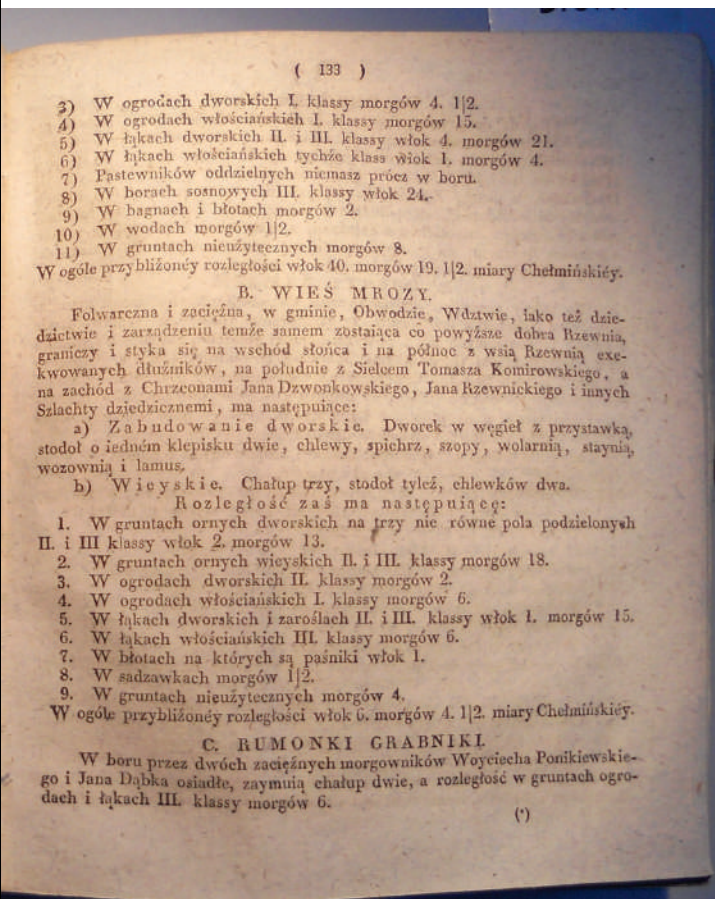 ( 133 )
3) W ogrodach dworskich I. klassy morgów 4. 1|2.
4) W ogrodach włościańskich I. klassy morgów 15.
5) W łąkach dworskich II. i III. klassy włok 4. morgów 21.
6) W łąkach włościańskich tychże klass włok 1. morgów 4.
7) Pastewników oddzielnych niemasz prócz w boru.
8) W borach sosnowych III. klassy włok 24.
9) W bagnach i błotach morgów 2.
10) W wodach morgów 1|2.
11) W gruntach nieużytecznych morgów 8.
W ogóle przybliżonéy rozległości włok 40. morgów 19. 1|2. miary Chełmińskiéy.
B. WIEŚ MROZY.
Folwarczna i zaciężna, w gminie, Obwodzie, Wdztwie, iako też dzie-
dzictwie i zarządzeniu temże samem zostaiąca co powyższe dobra Rzewnia,
graniczy i styka się na wschód słońca i na północ z wsią Rzewnią exe-
kwowanych dłużników, na południe z Sielcem Tomasza Komirowskiego, a
na zachód z Chrzconami Jana Dzwonkowskiego, Jana Rzewnickiego i innych
Szlachty dziedzicznemi, ma następuiące:
a) Zabudowanie dworskie. Dworek w węgieł z przystawką,
stodoł o iedném klepisku dwie, chlewy, spichrz, szopy, wolarnią, staynią,
wozownią i lamus.
b) Wieyskie. Chałup trzy, stodoł tyleż, chlewków dwa.
Rozległość zaś ma następuiącę:
1. W gruntach ornych dworskich na trzy nie równe pola podzielonych
II. i III klassy włok 2. morgów 13.
2. W gruntach ornych wieyskich II. i III. klassy morgów 18.
3. W ogrodach dworskich II. klassy morgów 2.
4. W ogrodach włościańskich I. klassy morgów 6.
5. W łąkach dworskich i zaroślach II. i III. klassy włok 1. morgów 15.
6. W łąkach włościańskich III. klassy morgów 6.
7. W błotach na których są paśniki włok 1.
8. W sadzawkach morgów 1|2.
9. W gruntach nieużytecznych morgów 4.
W ogóle przybliżonéy rozległości włok 6. morgów 4. 1|2. miary Chełmińskiéy.
C. RUMONKI GRABNIKI.
W boru przez dwóch zaciężnych morgowników Woyciecha Ponikiewskie-
go i Jana Dąbka osiadłe, zaymuią chałup dwie, a rozległość w gruntach ogro-
dach i łąkach III. klassy morgów 6.
(*)